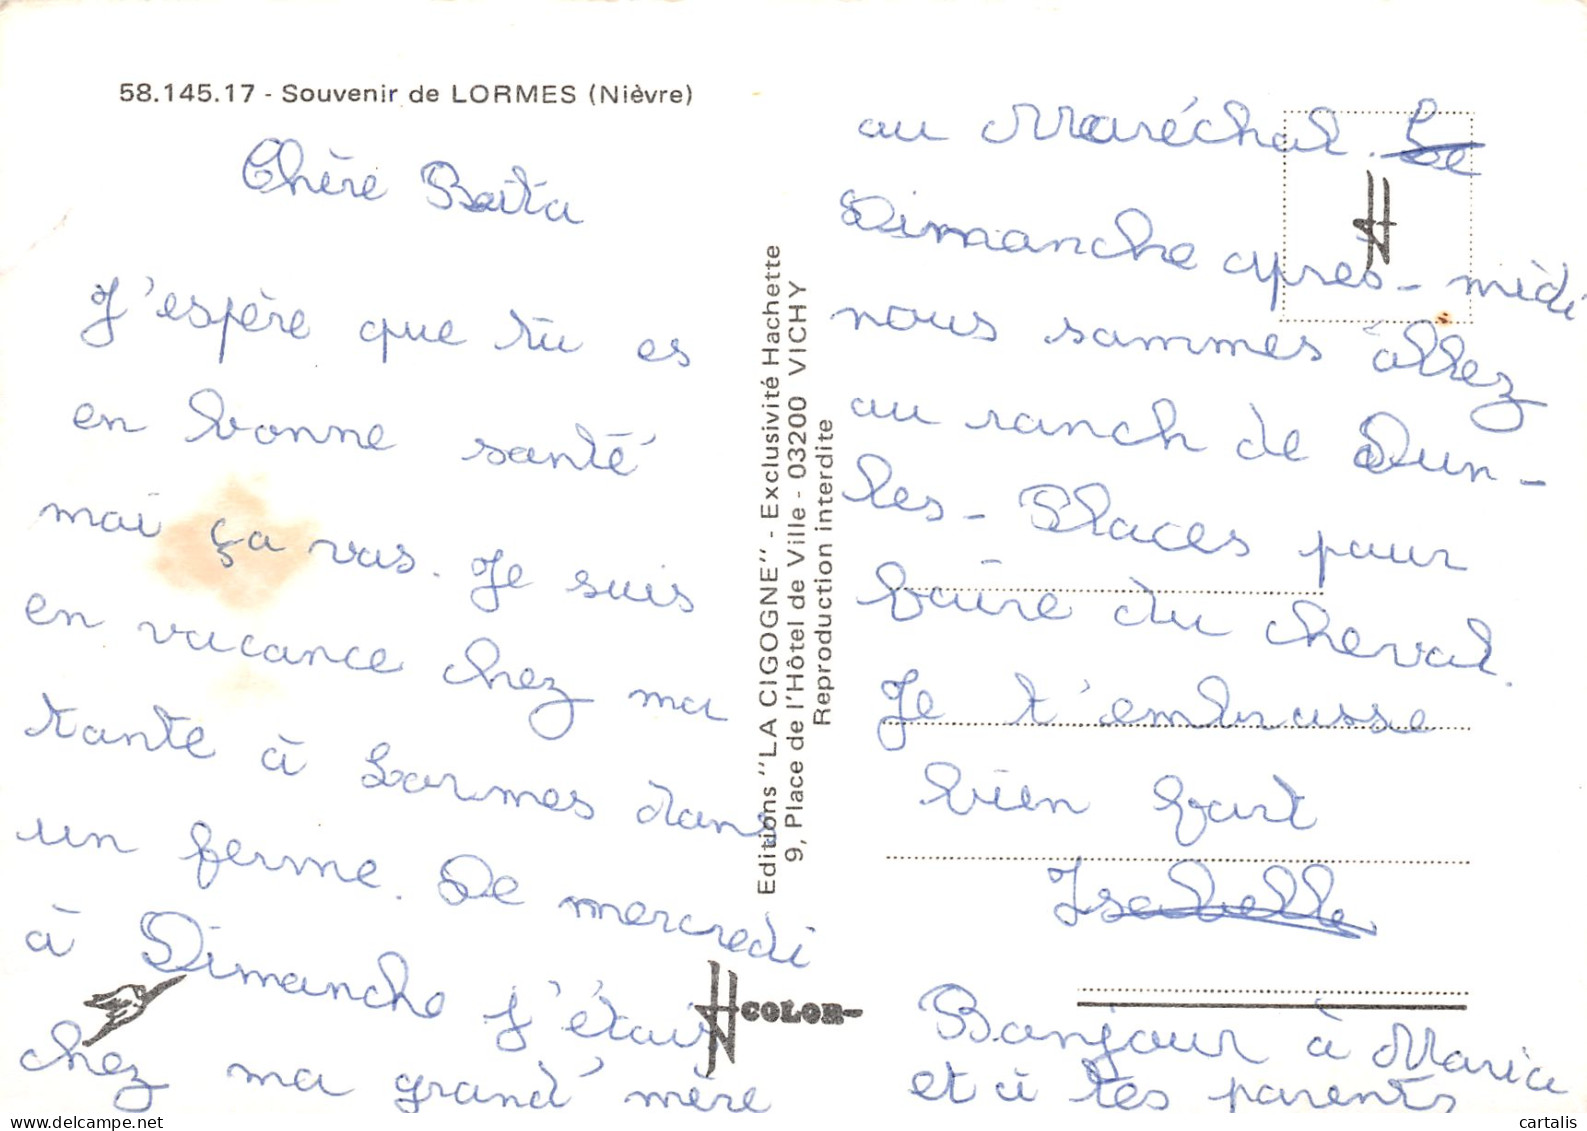 58.145.17 - Souvenir de LORMES (Nièvre)
Chère Beita
J'espère que tu es
en bonne santé
moi ça vas. Je suis
en vacance chez ma
tante à Lormes dans
un ferme. De mercredi
à Dimanche j'étais
chez ma grand'mère
Editions "LA CIGOGNE" - Exclusivité Hachette
9, Place de l'Hôtel de Ville - 03200 VICHY
Reproduction interdite
COLOR
au Maréchal. Le
Dimanche après-midi
nous sommes allez
au ranch de Dun-
les-Places pour
faire du cheval.
Je t'embrasse
bien fort
Isabelle
Bonjour à Marica
et à tes parents
cartalis